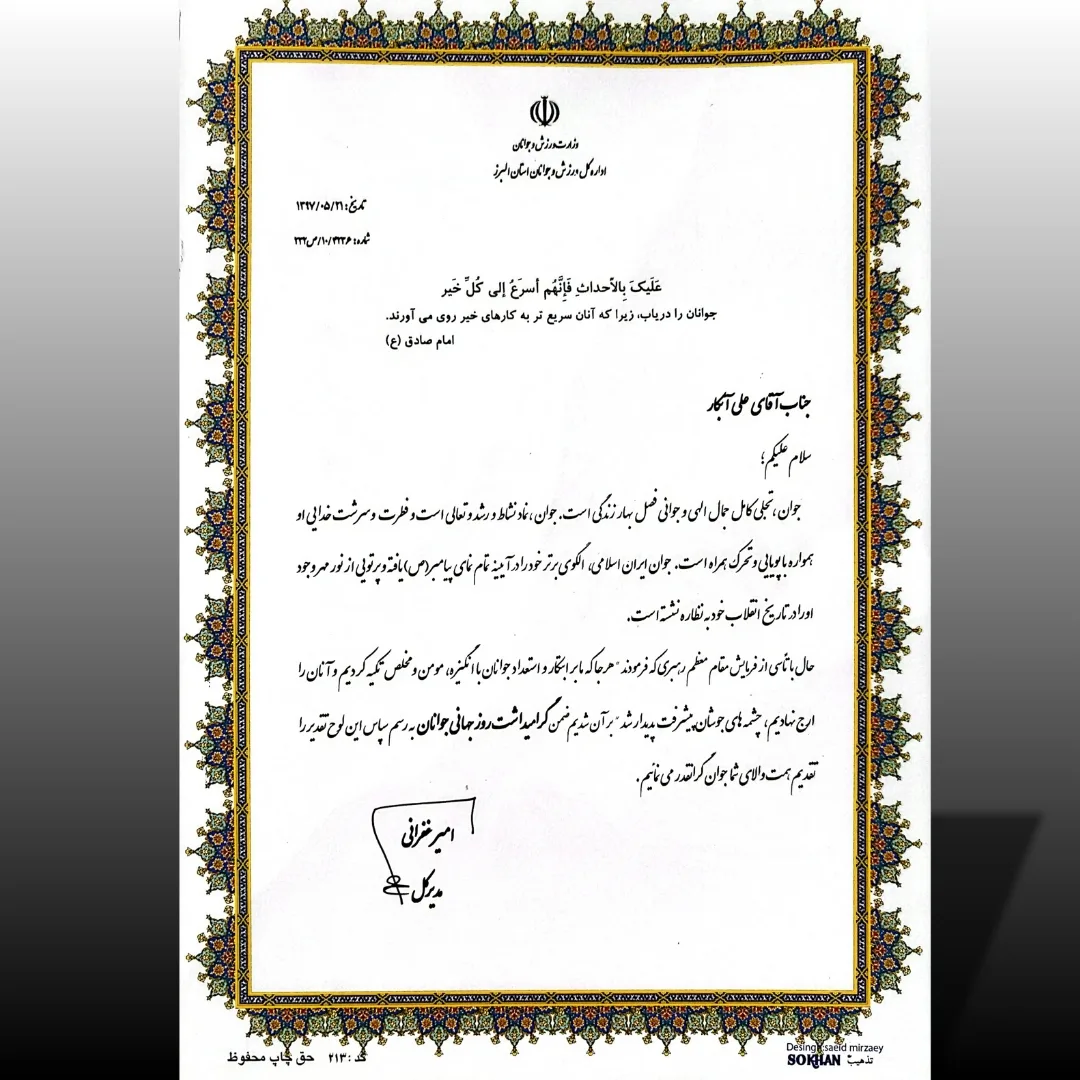 وزارت ورزش و جوانان
اداره کل ورزش و جوانان استان البرز
تاریخ: ۱۳۹۷/۰۵/۲۱
شماره: ۱۰/۴۲۲۶/ص۲۲۲
عَلَیکَ بِالأحداثِ فَإنَّهُم أسرَعُ إلی کُلِّ خَیر
جوانان را دریاب، زیرا که آنان سریع تر به کارهای خیر روی می آورند.
امام صادق (ع)
جناب آقای علی آبکار
سلام علیکم؛
جوان، تجلی کامل جمال الهی و جوانی فصل بهار زندگی است. جوان، نماد نشاط و رشد و تعالی است و فطرت و سرشت خدایی او
همواره با پویایی و تحرک همراه است. جوان ایران اسلامی، الگوی برتر خود را در آیینه تمام نمای پیامبر(ص) یافته و پرتویی از نور مهر وجود
او را در تاریخ انقلاب خود به نظاره نشسته است.
حال با تأسی از فرمایش مقام معظم رهبری که فرمودند "هر جا که ما بر ابتکار و استعداد جوانان با انگیزه، مومن و مخلص تکیه کردیم و آنان را
ارج نهادیم، چشمه های جوشان پیشرفت پدیدار شد" بر آن شدیم ضمن گرامیداشت روز جهانی جوانان به رسم سپاس این لوح تقدیر را
تقدیم همت والای شما جوان گرانقدر می نمائیم.
امیر غفرانی
مدیرکل
کد: ۲۱۳ حق چاپ محفوظ
Desing: saeid mirzaey
SOKHAN تذهیب